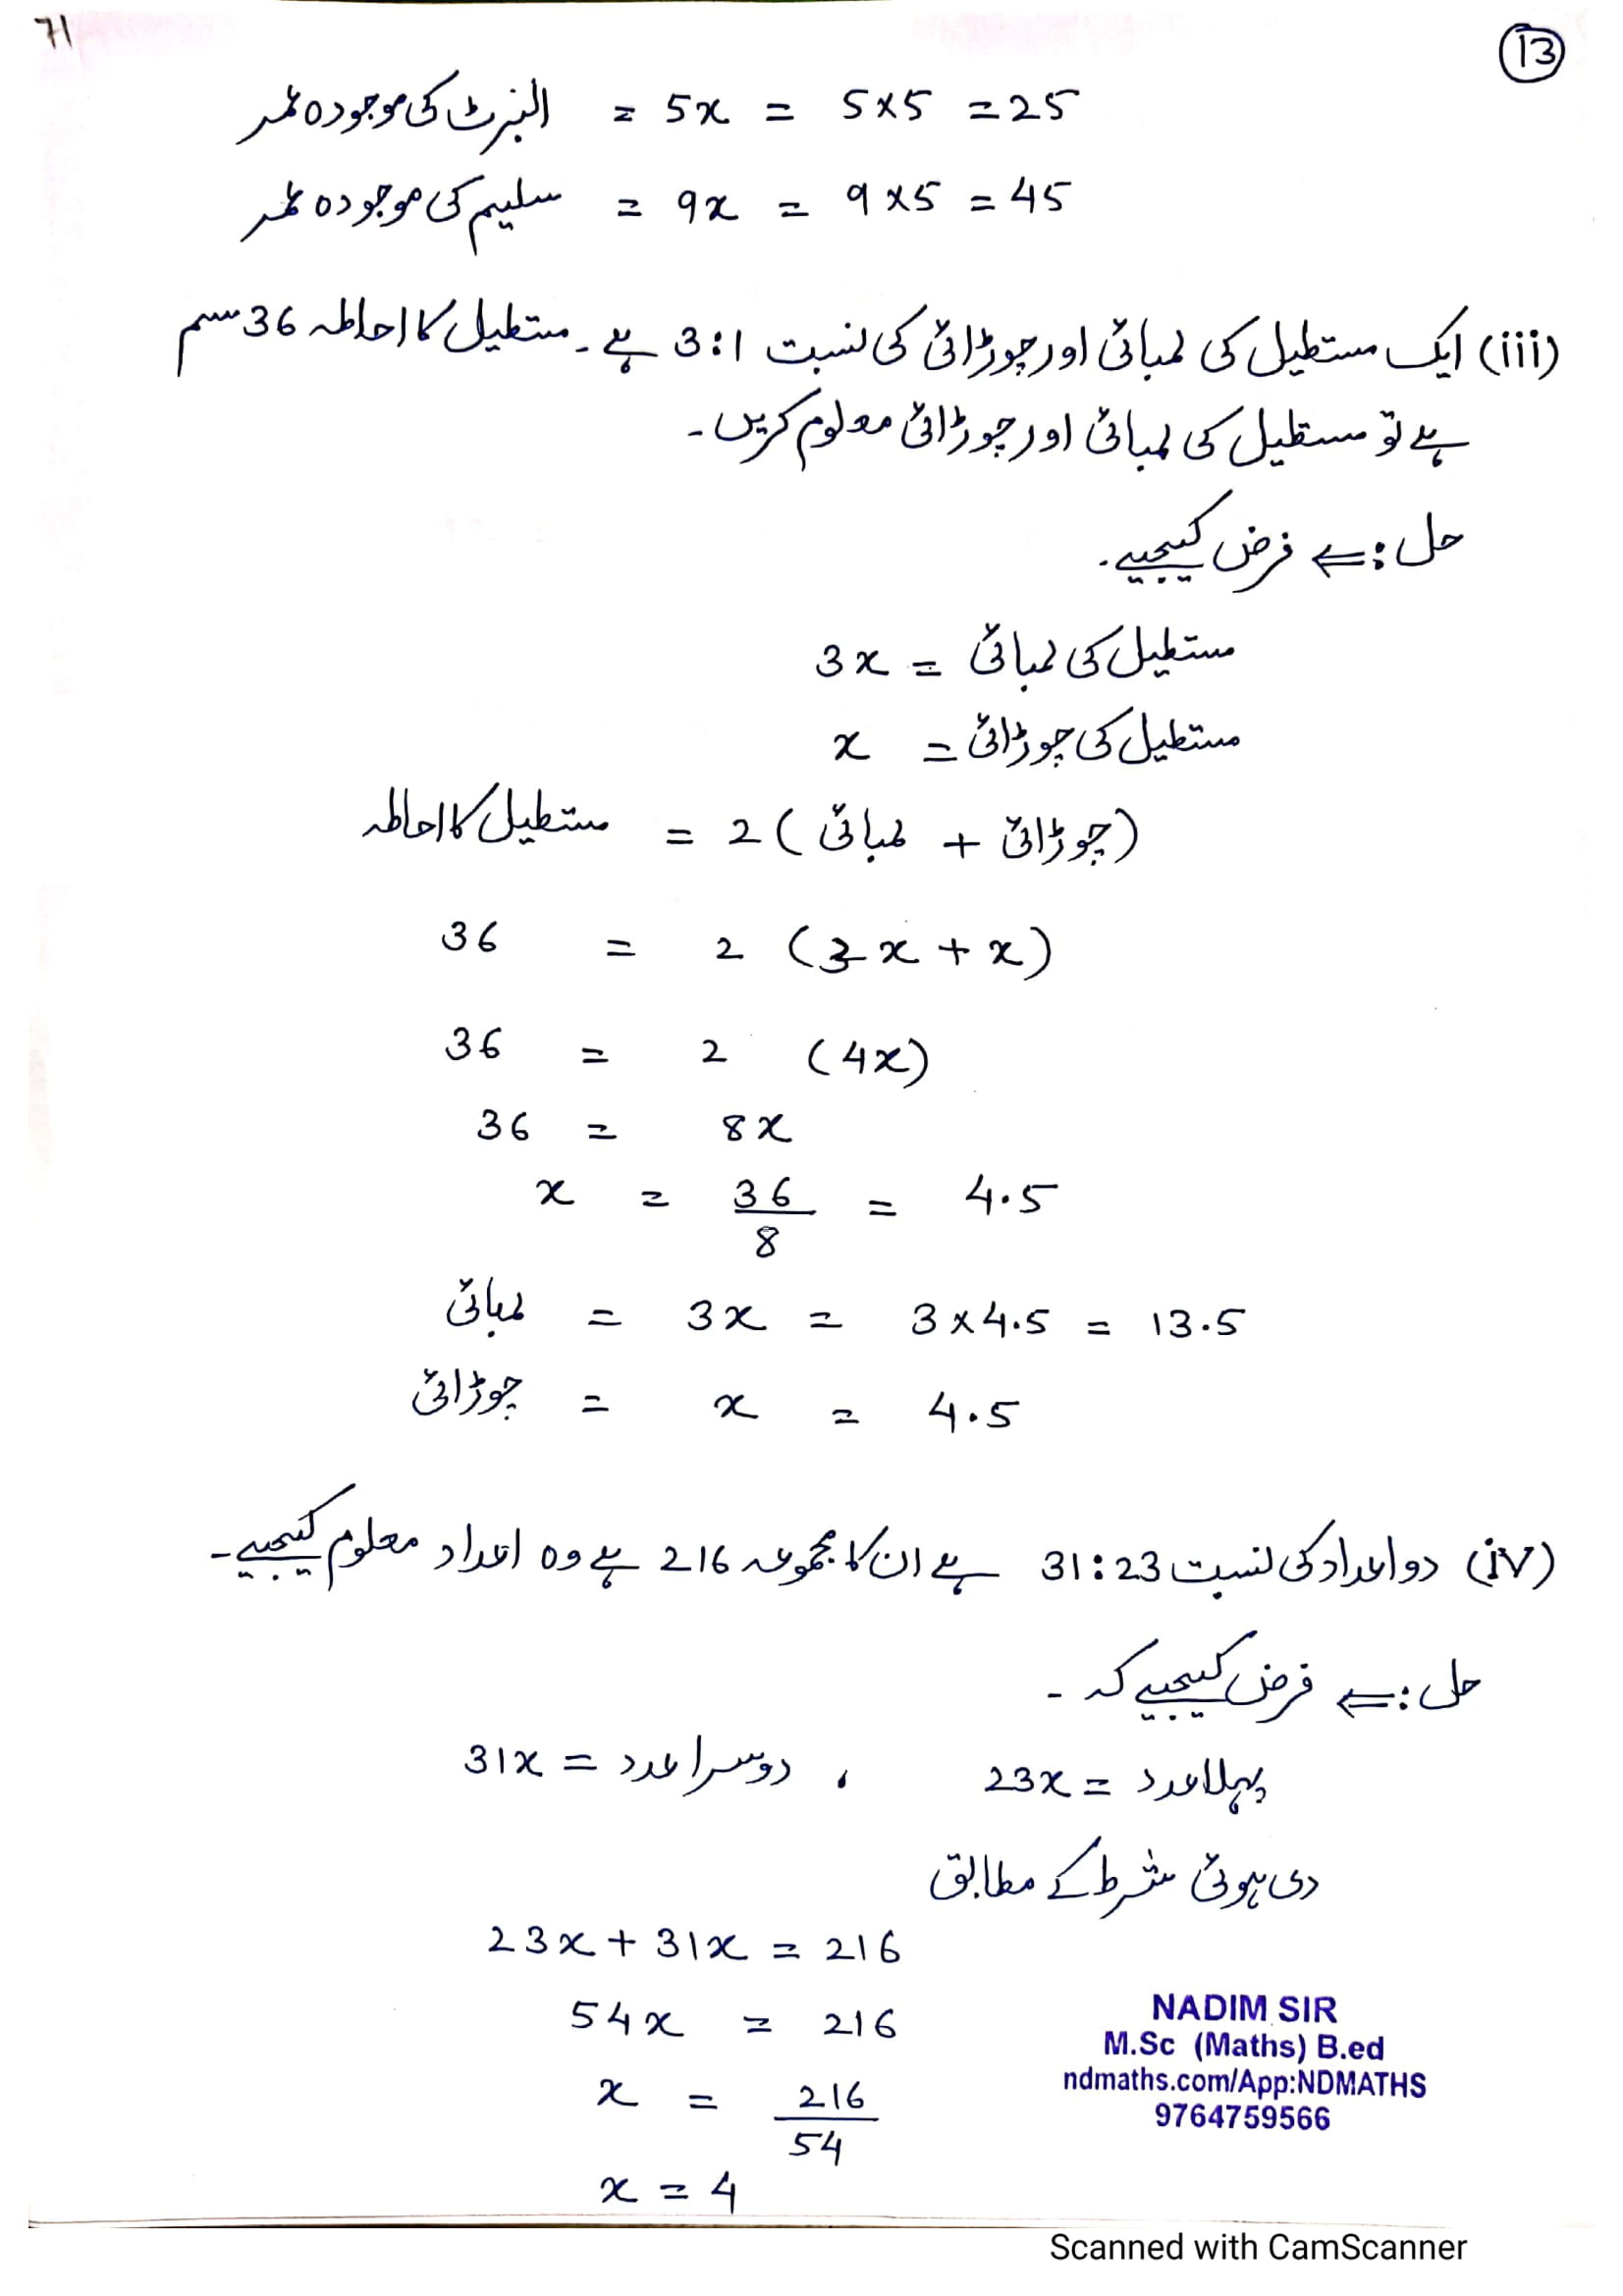 71
13
البرٹ کی موجودہ عمر = 5x = 5×5 = 25
سلیم کی موجودہ عمر = 9x = 9×5 = 45
(iii) ایک مستطیل کی لمبائی اور چوڑائی کی نسبت 3:1 ہے ۔ مستطیل کا احاطہ 36 سم
ہے تو مستطیل کی لمبائی اور چوڑائی معلوم کریں ۔
حل :⇐ فرض کیجیے ۔
مستطیل کی لمبائی = 3x
مستطیل کی چوڑائی = x
مستطیل کا احاطہ = 2 (لمبائی + چوڑائی)
36 = 2 (3x + x)
36 = 2 (4x)
36 = 8x
x = 36/8 = 4.5
لمبائی = 3x = 3×4.5 = 13.5
چوڑائی = x = 4.5
(iv) دو اعداد کی نسبت 31:23 ہے ان کا مجموعہ 216 ہے وہ اعداد معلوم کیجیے ۔
حل :⇐ فرض کیجیے کہ ۔
پہلا عدد = 23x ، دوسرا عدد = 31x
دی ہوئی شرط کے مطابق
23x + 31x = 216
54x = 216
x = 216/54
x = 4
NADIM SIR
M.Sc (Maths) B.ed
ndmaths.com/App:NDMATHS
9764759566
Scanned with CamScanner